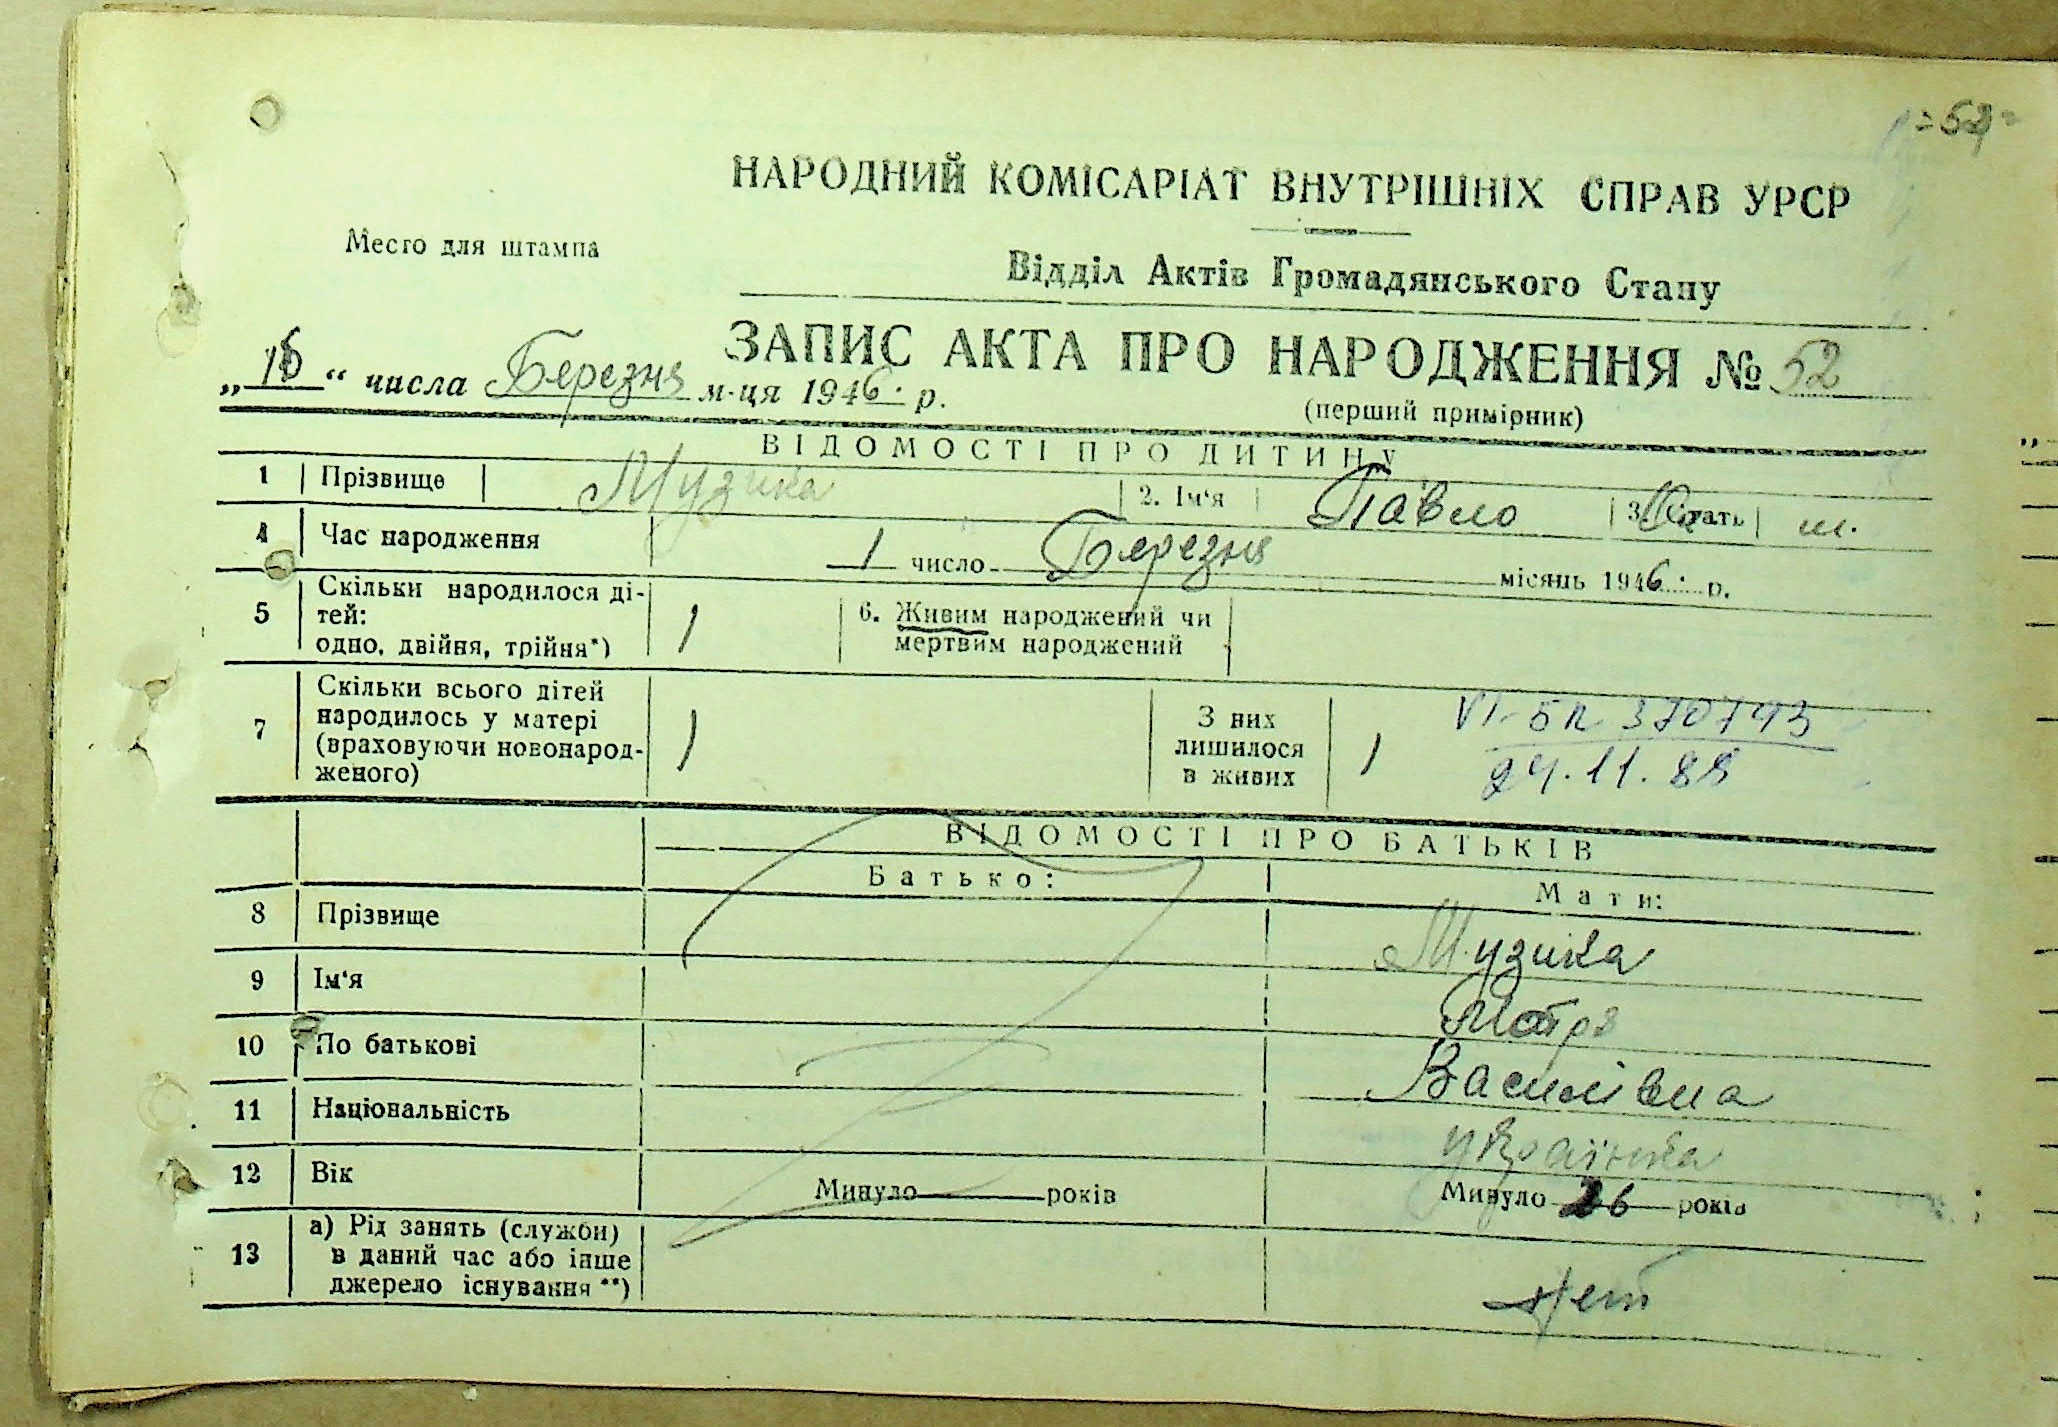 - 52 -
НАРОДНИЙ КОМІСАРІАТ ВНУТРІШНІХ СПРАВ УРСР
Место для штампа
Відділ Актів Громадянського Стану
ЗАПИС АКТА ПРО НАРОДЖЕННЯ № 52
„ 16 “ числа Березня м-ця 1946. р.
(перший примірник)
ВІДОМОСТІ ПРО ДИТИНУ
1 Прізвище Музика 2. Ім‘я Павло 3. Стать
4 Час народження 1 число Березня місяць 1946. р.
5 Скільки народилося ді-
тей:
одно, двійня, трійня*) 1 6. Живим народжений чи
мертвим народжений
7 Скільки всього дітей
народилось у матері
(враховуючи новонарод-
женого) 1 З них
лишилося
в живих 1
370743
24.11.88
ВІДОМОСТІ ПРО БАТЬКІВ
Батько: Мати:
8 Прізвище Музика
9 Ім‘я Мотря
10 По батькові Василівна
11 Національність українка
12 Вік Минуло років Минуло 26 років
13 а) Рід занять (служби)
в даний час або інше
джерело існування **)